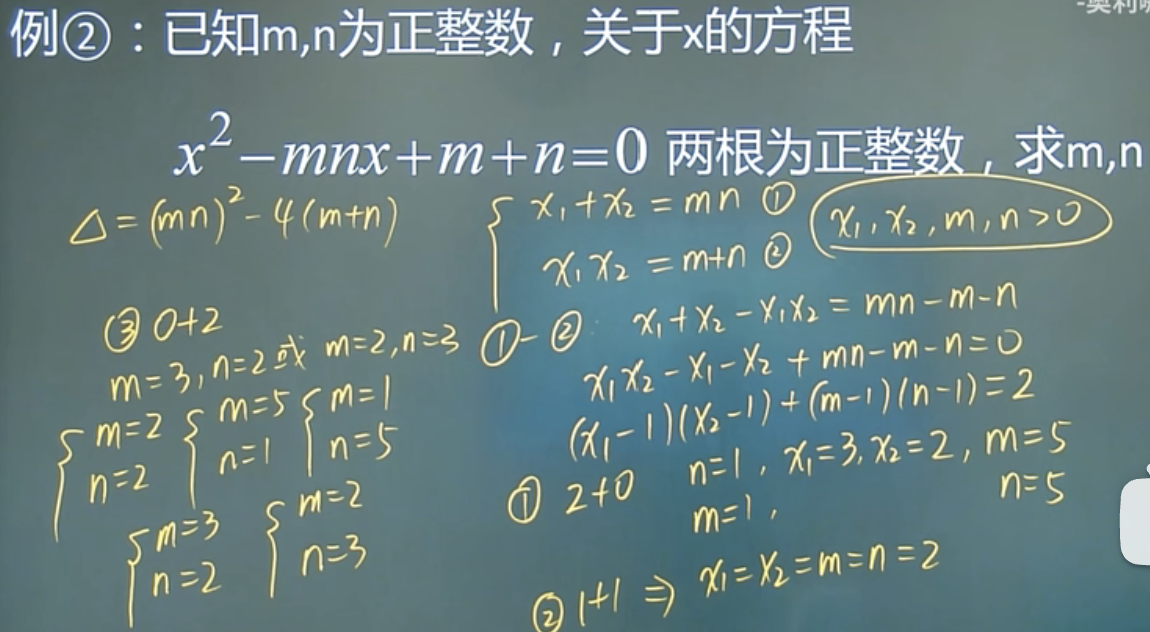 -奥利
例②：已知m,n为正整数，关于x的方程
x²-mnx+m+n=0 两根为正整数，求m,n
△=(mn)²-4(m+n)
x₁+x₂=mn ①
x₁x₂=m+n ②
x₁,x₂,m,n>0
①-② x₁+x₂-x₁x₂=mn-m-n
x₁x₂-x₁-x₂+mn-m-n=0
(x₁-1)(x₂-1)+(m-1)(n-1)=2
① 2+0 n=1, x₁=3, x₂=2, m=5
m=1, n=5
② 1+1 ⇒ x₁=x₂=m=n=2
③ 0+2
m=3,n=2或 m=2,n=3
{m=2 {m=5 {m=1
n=2 n=1 n=5
{m=3 {m=2
n=2 n=3